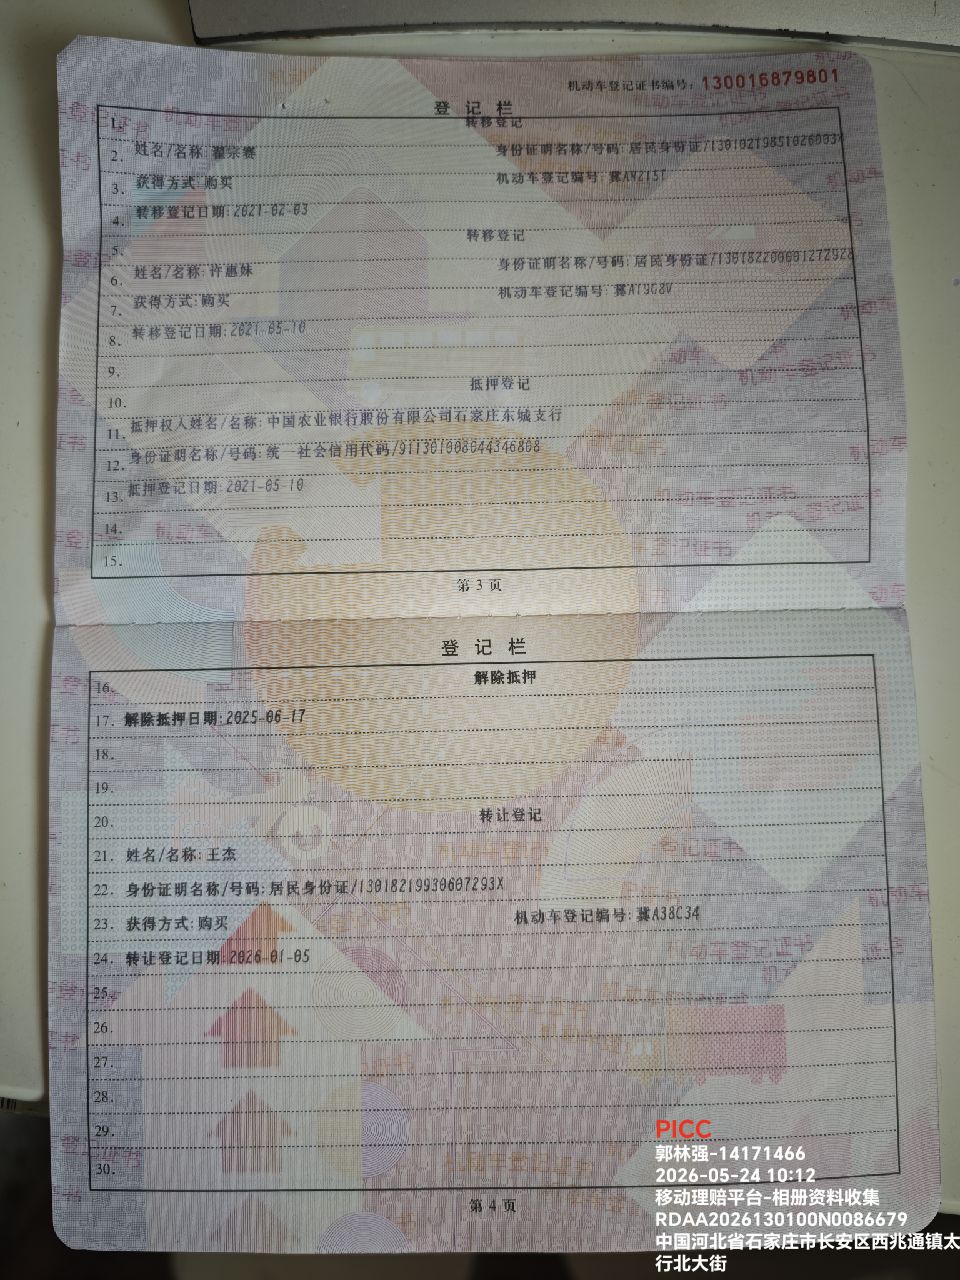 机动车登记证书编号：130016879801
登 记 栏
1. 转移登记
2. 姓名/名称：翟宗赛 身份证明名称/号码：居民身份证/13010219851026003X
3. 获得方式：购买 机动车登记编号：冀AW215T
4. 转移登记日期：2021-02-03
5. 转移登记
6. 姓名/名称：许惠妹 身份证明名称/号码：居民身份证/
7. 获得方式：购买 机动车登记编号：
8. 转移登记日期：2021-05-10
9.
10. 抵押登记
11. 抵押权人姓名/名称：中国农业银行股份有限公司石家庄东城支行
12. 身份证明名称/号码：统一社会信用代码/911301008044346808
13. 抵押登记日期：2021-05-10
14.
15.
第 3 页
登 记 栏
16. 解除抵押
17. 解除抵押日期：2025-06-17
18.
19.
20. 转让登记
21. 姓名/名称：王杰
22. 身份证明名称/号码：居民身份证/13018219930607293X
23. 获得方式：购买 机动车登记编号：冀A38C34
24. 转让登记日期：2026-01-05
25.
26.
27.
28.
29.
30.
第 4 页
PICC
郭林强-14171466
2026-05-24 10:12
移动理赔平台-相册资料收集
RDAA2026130100N0086679
中国河北省石家庄市长安区西兆通镇太
行北大街